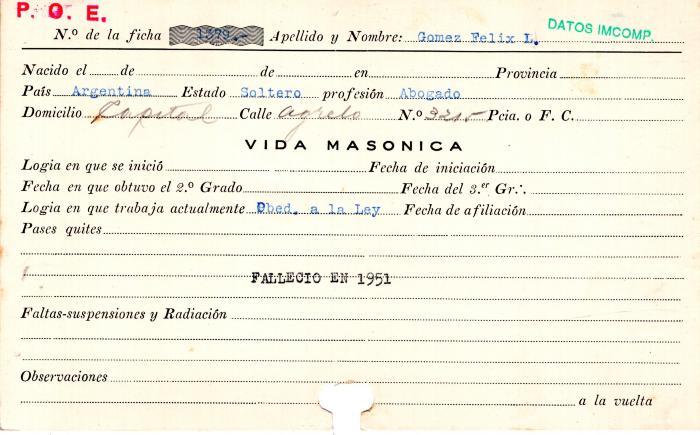 P. O. E.
DATOS IMCOMP.
N.º de la ficha 1379.- Apellido y Nombre: Gomez Felix L.
Nacido el de de en Provincia
País Argentina Estado Soltero profesión Abogado
Domicilio Capital Calle Agrelo N.º 3215 Pcia. o F. C.
VIDA MASONICA
Logia en que se inició Fecha de iniciación
Fecha en que obtuvo el 2.º Grado Fecha del 3.er Gr.·.
Logia en que trabaja actualmente Obed. a la Ley Fecha de afiliación
Pases quites
FALLECIO EN 1951
Faltas-suspensiones y Radiación
Observaciones
a la vuelta